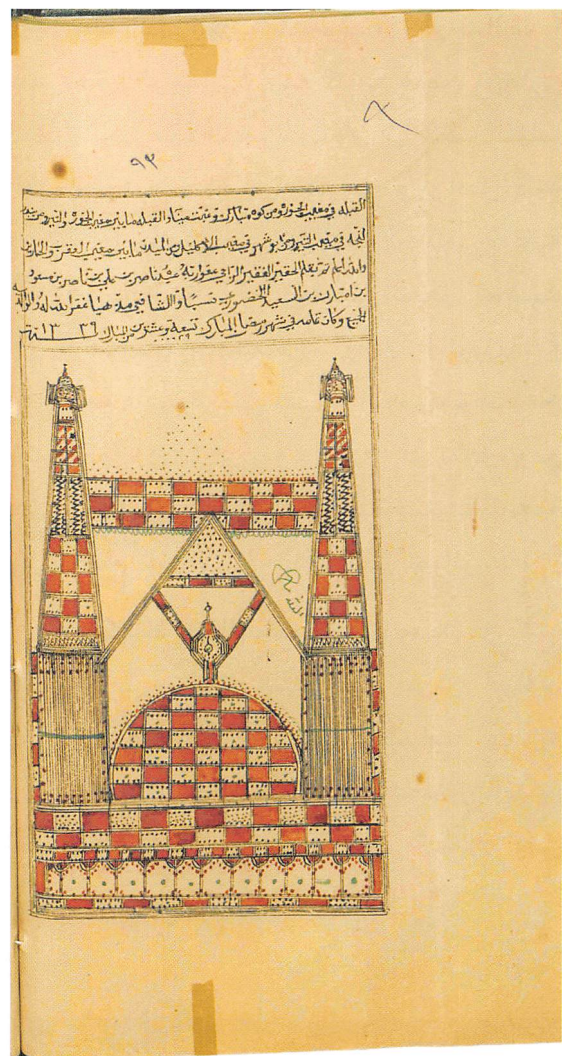 ٨
٩٣
القبله في مغيب الجوزه ومن كوه مبارك وعبت مينا و القبله مابين مغيب الجوزه والتير ومن
القبله في مغيب التير ومن ابو شهر في مغيب الاكليل من المدينه مابين مغيب العقرب والحمارين
والله اعلم تمت بقلم الحقير الفقير الراجي عفو ربه عبده ناصر بن علي بن ناصر بن سعود
بن مبارك بن السعيد الخضوري نسبًا والشافعي مذهبا غفر الله له ولوالديه
وكان تمامه في شهر رمضان المبارك تسعه وعشرين من المبارك سنة ١٣٣٦
الله